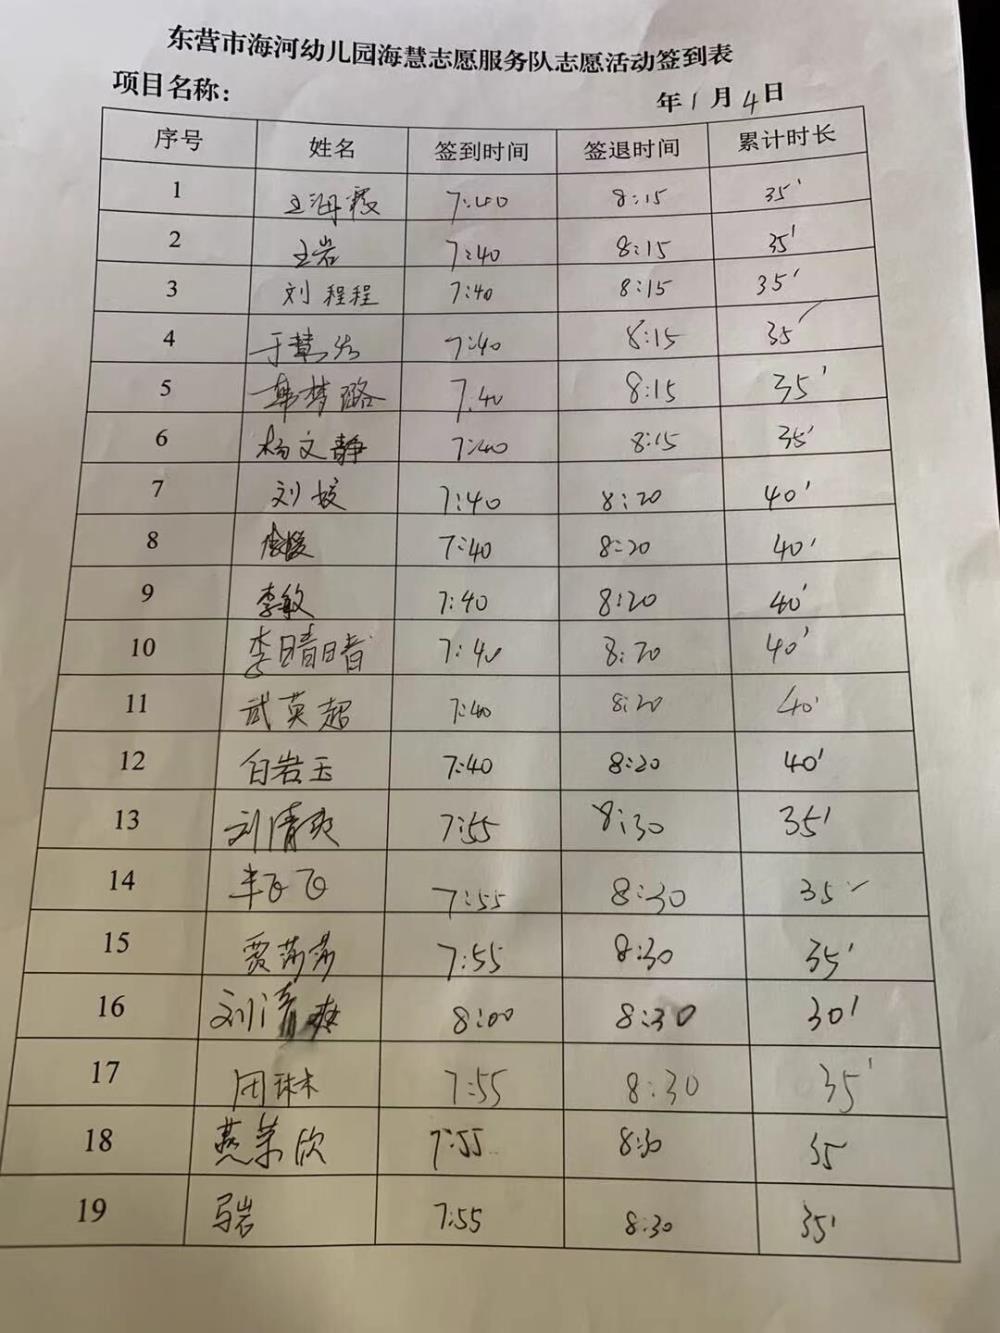 东营市海河幼儿园海慧志愿服务队志愿活动签到表
项目名称: 年1月4日
序号 姓名 签到时间 签退时间 累计时长
1 王海霞 7:40 8:15 35'
2 王岩 7:40 8:15 35'
3 刘程程 7:40 8:15 35'
4 7:40 8:15 35'
5 韩梦璐 7:40 8:15 35'
6 杨文静 7:40 8:15 35'
7 刘媛 7:40 8:20 40'
8 7:40 8:20 40'
9 李敏 7:40 8:20 40'
10 李晴晴 7:40 8:20 40'
11 武英超 7:40 8:20 40'
12 白岩玉 7:40 8:20 40'
13 刘清爽 7:55 8:30 35'
14 飞飞 7:55 8:30 35'
15 贾莎莎 7:55 8:30 35'
16 刘清爽 8:00 8:30 30'
17 周琳 7:55 8:30 35'
18 燕荣欣 7:55 8:30 35
19 马岩 7:55 8:30 35'